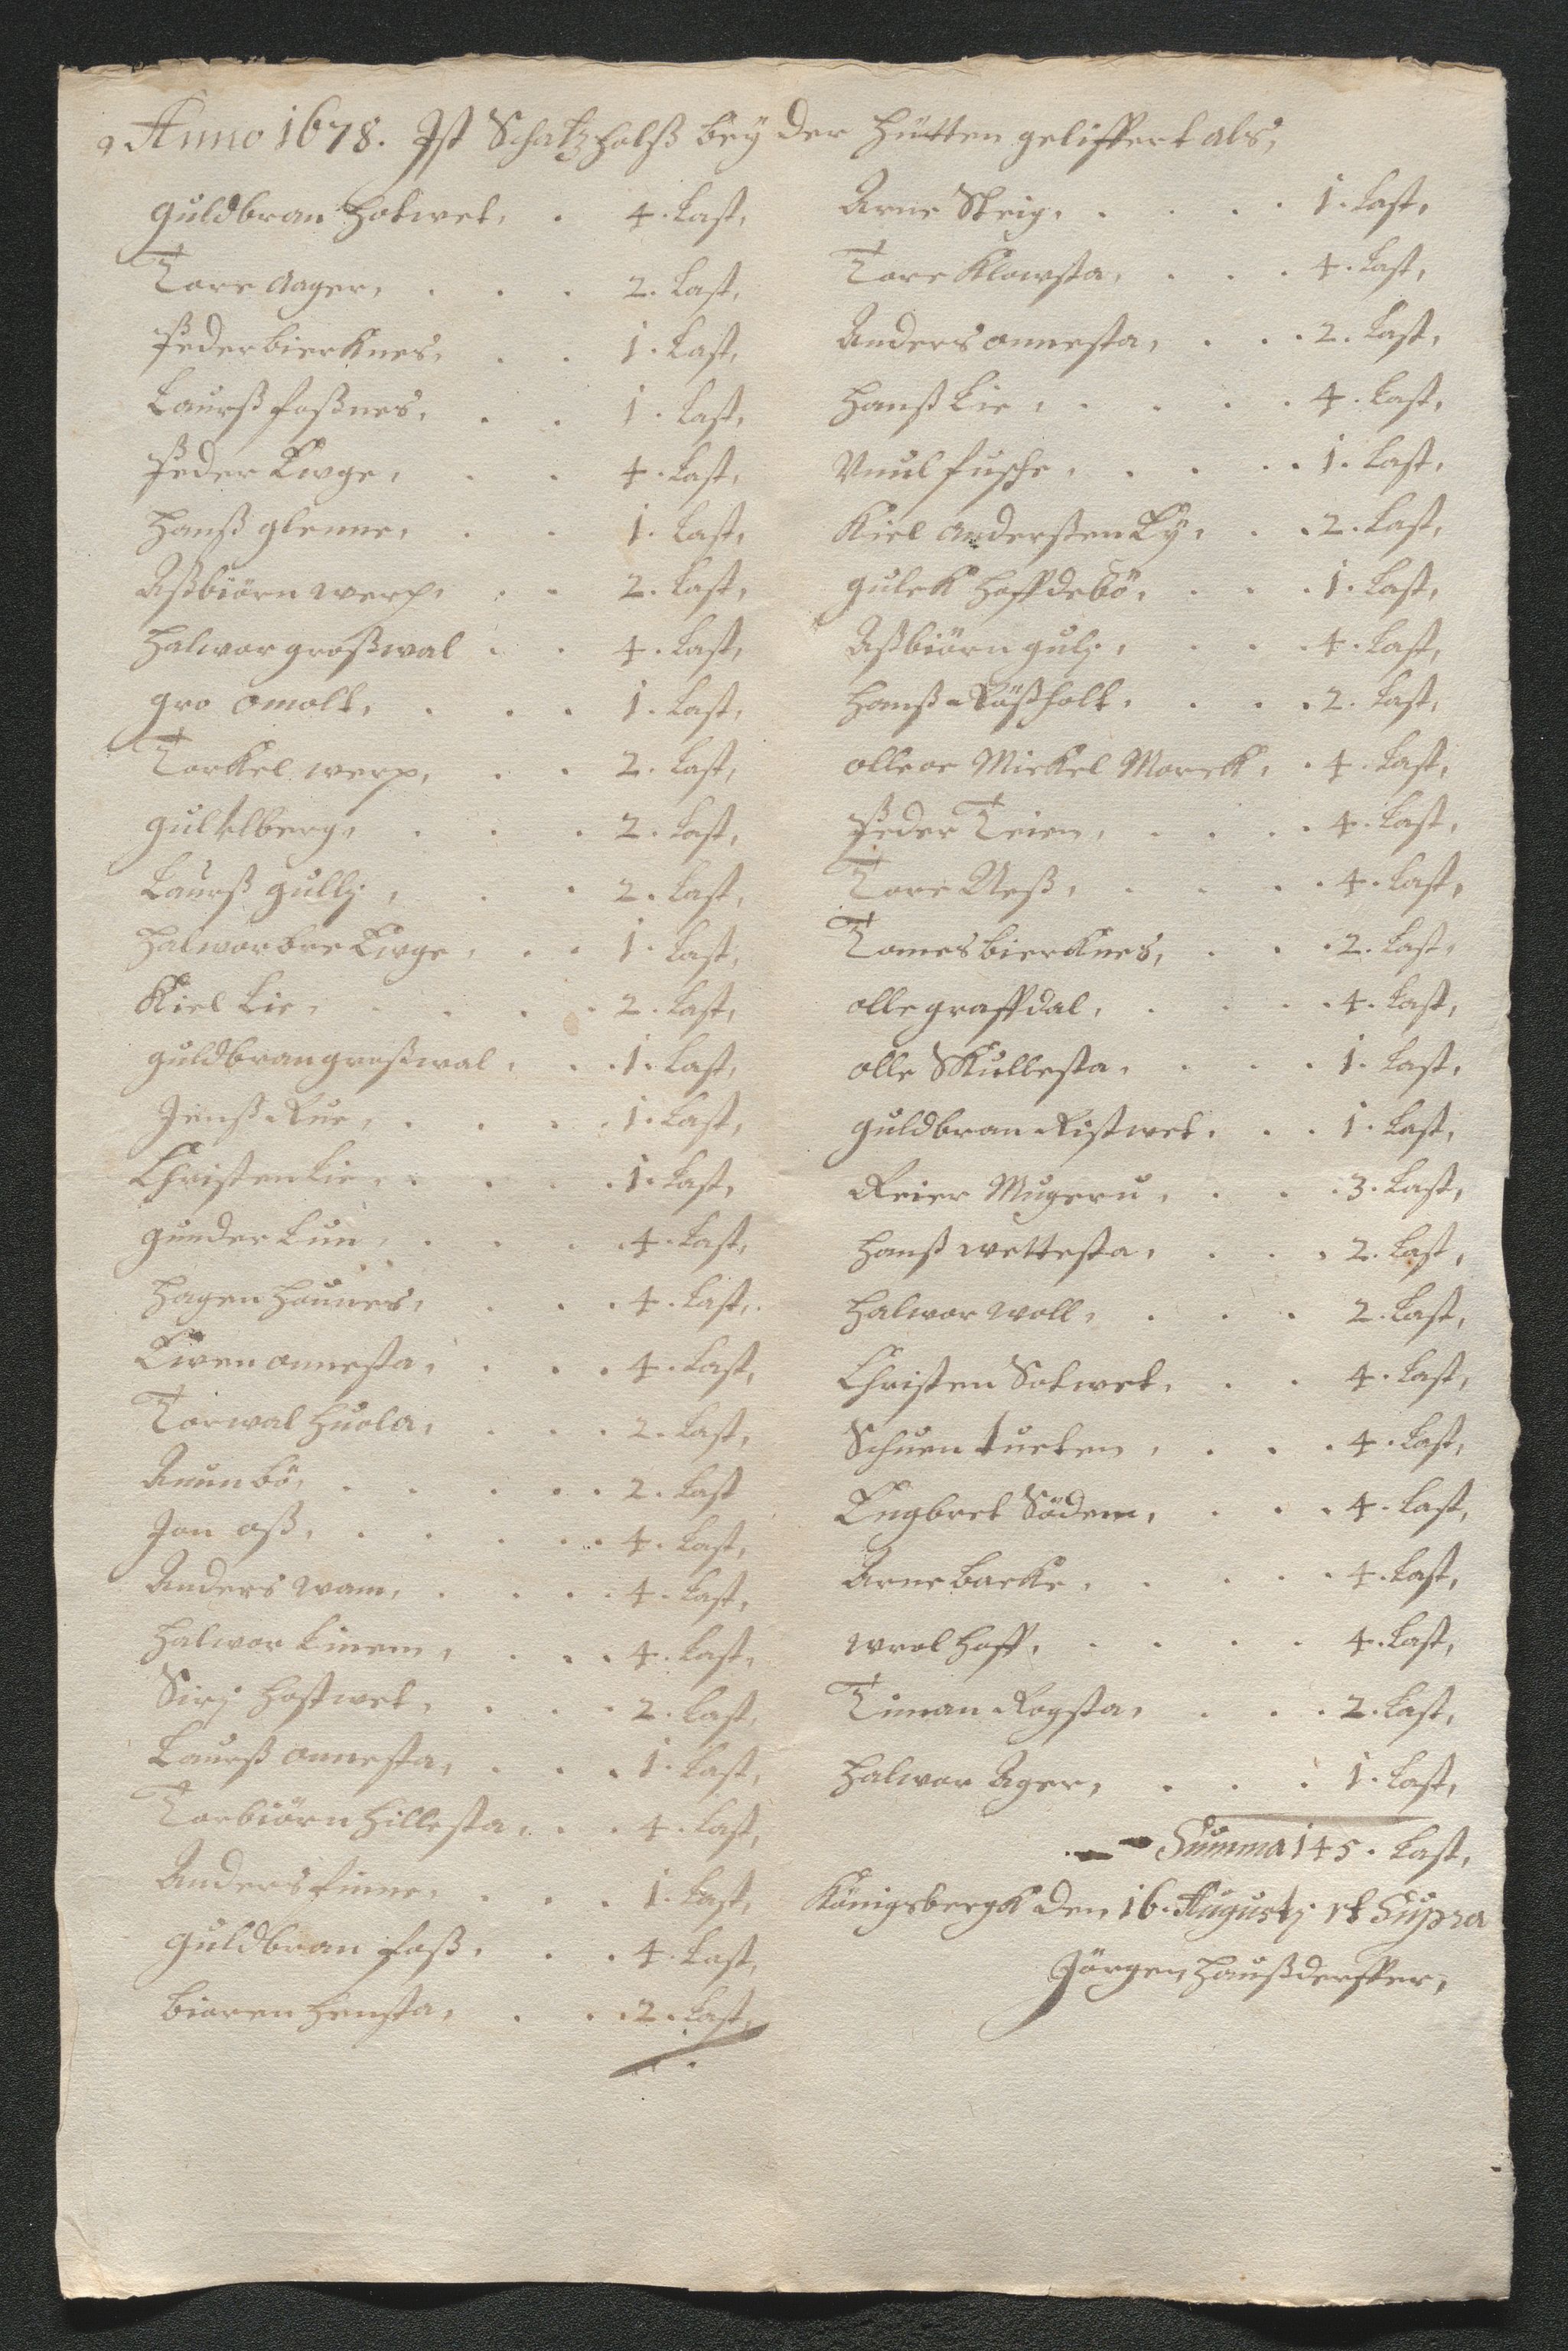 Anno 1678. Ist Schatz holß beÿ der Hütten geliffert als,
guldbran Hotwet, . 4. Last,
Tore aager, . . . 2. Last,
Peder bierknes, . . 1. Last,
Laurß foßnes, . . 1. Last,
Peder Ewge, . . 4. Last,
Hanß glenne, . . 1. Last,
Aßbiörn werp, . . 2. Last,
Halwor großwal . . 4. Last,
gro omolt, . . . 1. Last,
Torkel werp, . . 2. Last,
gulklberg, . . . 2. Last,
Laurß gullj, . . 2. Last,
Halwor bre Ewge, . . 1. Last,
Kiel Lie, . . . . 2. Last,
guldbran großwal, . . 1. Last,
Jenß Rue, . . . . 1. Last,
Christen Lie, . . . . 1. Last,
gunder Lun, . . . . 4. Last,
Hagen Hounes, . . . 4. Last,
Ewen onnesta, . . . 4. Last,
Torwal Huola, . . . 2. Last,
Anun bö, . . . . . 2. Last
Jon aß, . . . . . 4. Last,
Anders wam, . . . . 4. Last,
Halwor Linem, . . . 4. Last,
Sirj Hostwet, . . . 2. Last,
Laurß onnesta, . . . 1. Last,
Torbiörn Hillesta, . . 4. Last,
Anders finne, . . . 1. Last,
guldbran foß, . . . 4. Last,
bioren Hensta, . . . 2. Last,
Arne Steig, . . . . 1. Last,
Tore Klowsta, . . . 4. Last,
Anders onnesta, . . . 2. Last,
Hanß Lie, . . . . 4. Last,
fusche, . . . . 1. Last,
Kiel anderßen Bÿ, . . 2. Last,
gulek Hoffdebö, . . . 1. Last,
Aßbiörn gulj, . . . 4. Last,
Hanß Rüßholt, . . . 2. Last,
olle oc Mickel Morck, . 4. Last,
Peder Teien, . . . . 4. Last,
Tore Neß, . . . . 4. Last,
Tomes bierknes, . . . 2. Last,
olle graffdal, . . . . 4. Last,
olle Skullesta, . . . 1. Last,
guldbran Ristwet, . . . 1. Last,
Reier Mugeru, . . . 3. Last,
Hanß wettesta, . . . 2. Last,
Halwor woll, . . . 2. Last,
Christen Sotwet, . . . 4. Last,
Schuen tueten, . . . 4. Last,
Engbret Södem, . . . 4. Last,
Arne backe, . . . . 4. Last,
wrol Hoff, . . . . 4. Last,
Timan Rogsta, . . . 2. Last,
Halwor Ager, . . . 1. Last,
Summa 145. Last,
Königsbergk den 16. Augustj ut Supra
Jörgen Haußdörffer,